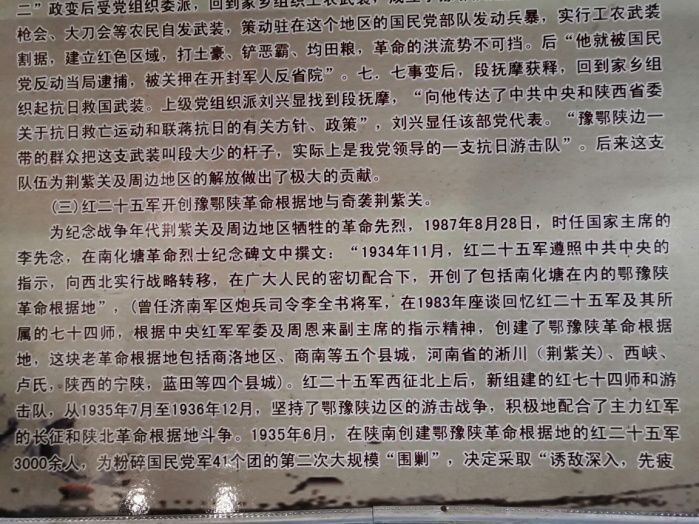 二”政变后受党组织委派，回到家乡组织工农武装，成立了
枪会、大刀会等农民自发武装，策动驻在这个地区的国民党部队发动兵暴，实行工农武装
割据，建立红色区域，打土豪、铲恶霸、均田粮，革命的洪流势不可挡。后“他就被国民
党反动当局逮捕，被关押在开封军人反省院”。七．七事变后，段抚摩获释，回到家乡组
织起抗日救国武装。上级党组织派刘兴显找到段抚摩，“向他传达了中共中央和陕西省委
关于抗日救亡运动和联蒋抗日的有关方针、政策”，刘兴显任该部党代表。“豫鄂陕边一
带的群众把这支武装叫段大少的杆子，实际上是我党领导的一支抗日游击队”。后来这支
队伍为荆紫关及周边地区的解放做出了极大的贡献。
（三）红二十五军开创豫鄂陕革命根据地与奇袭荆紫关。
为纪念战争年代荆紫关及周边地区牺牲的革命先烈，1987年8月28日，时任国家主席的
李先念，在南化塘革命烈士纪念碑文中撰文：“1934年11月，红二十五军遵照中共中央的
指示，向西北实行战略转移，在广大人民的密切配合下，开创了包括南化塘在内的鄂豫陕
革命根据地”，（曾任济南军区炮兵司令李全书将军，在1983年座谈回忆红二十五军及其所
属的七十四师，根据中央红军军委及周恩来副主席的指示精神，创建了鄂豫陕革命根据
地，这块老革命根据地包括商洛地区、商南等五个县城，河南省的淅川（荆紫关）、西峡、
卢氏，陕西的宁陕，蓝田等四个县城）。红二十五军西征北上后，新组建的红七十四师和游
击队，从1935年7月至1936年12月，坚持了鄂豫陕边区的游击战争，积极地配合了主力红军
的长征和陕北革命根据地斗争。1935年6月，在陕南创建鄂豫陕革命根据地的红二十五军
3000余人，为粉碎国民党军41个团的第二次大规模“围剿”，决定采取“诱敌深入，先疲